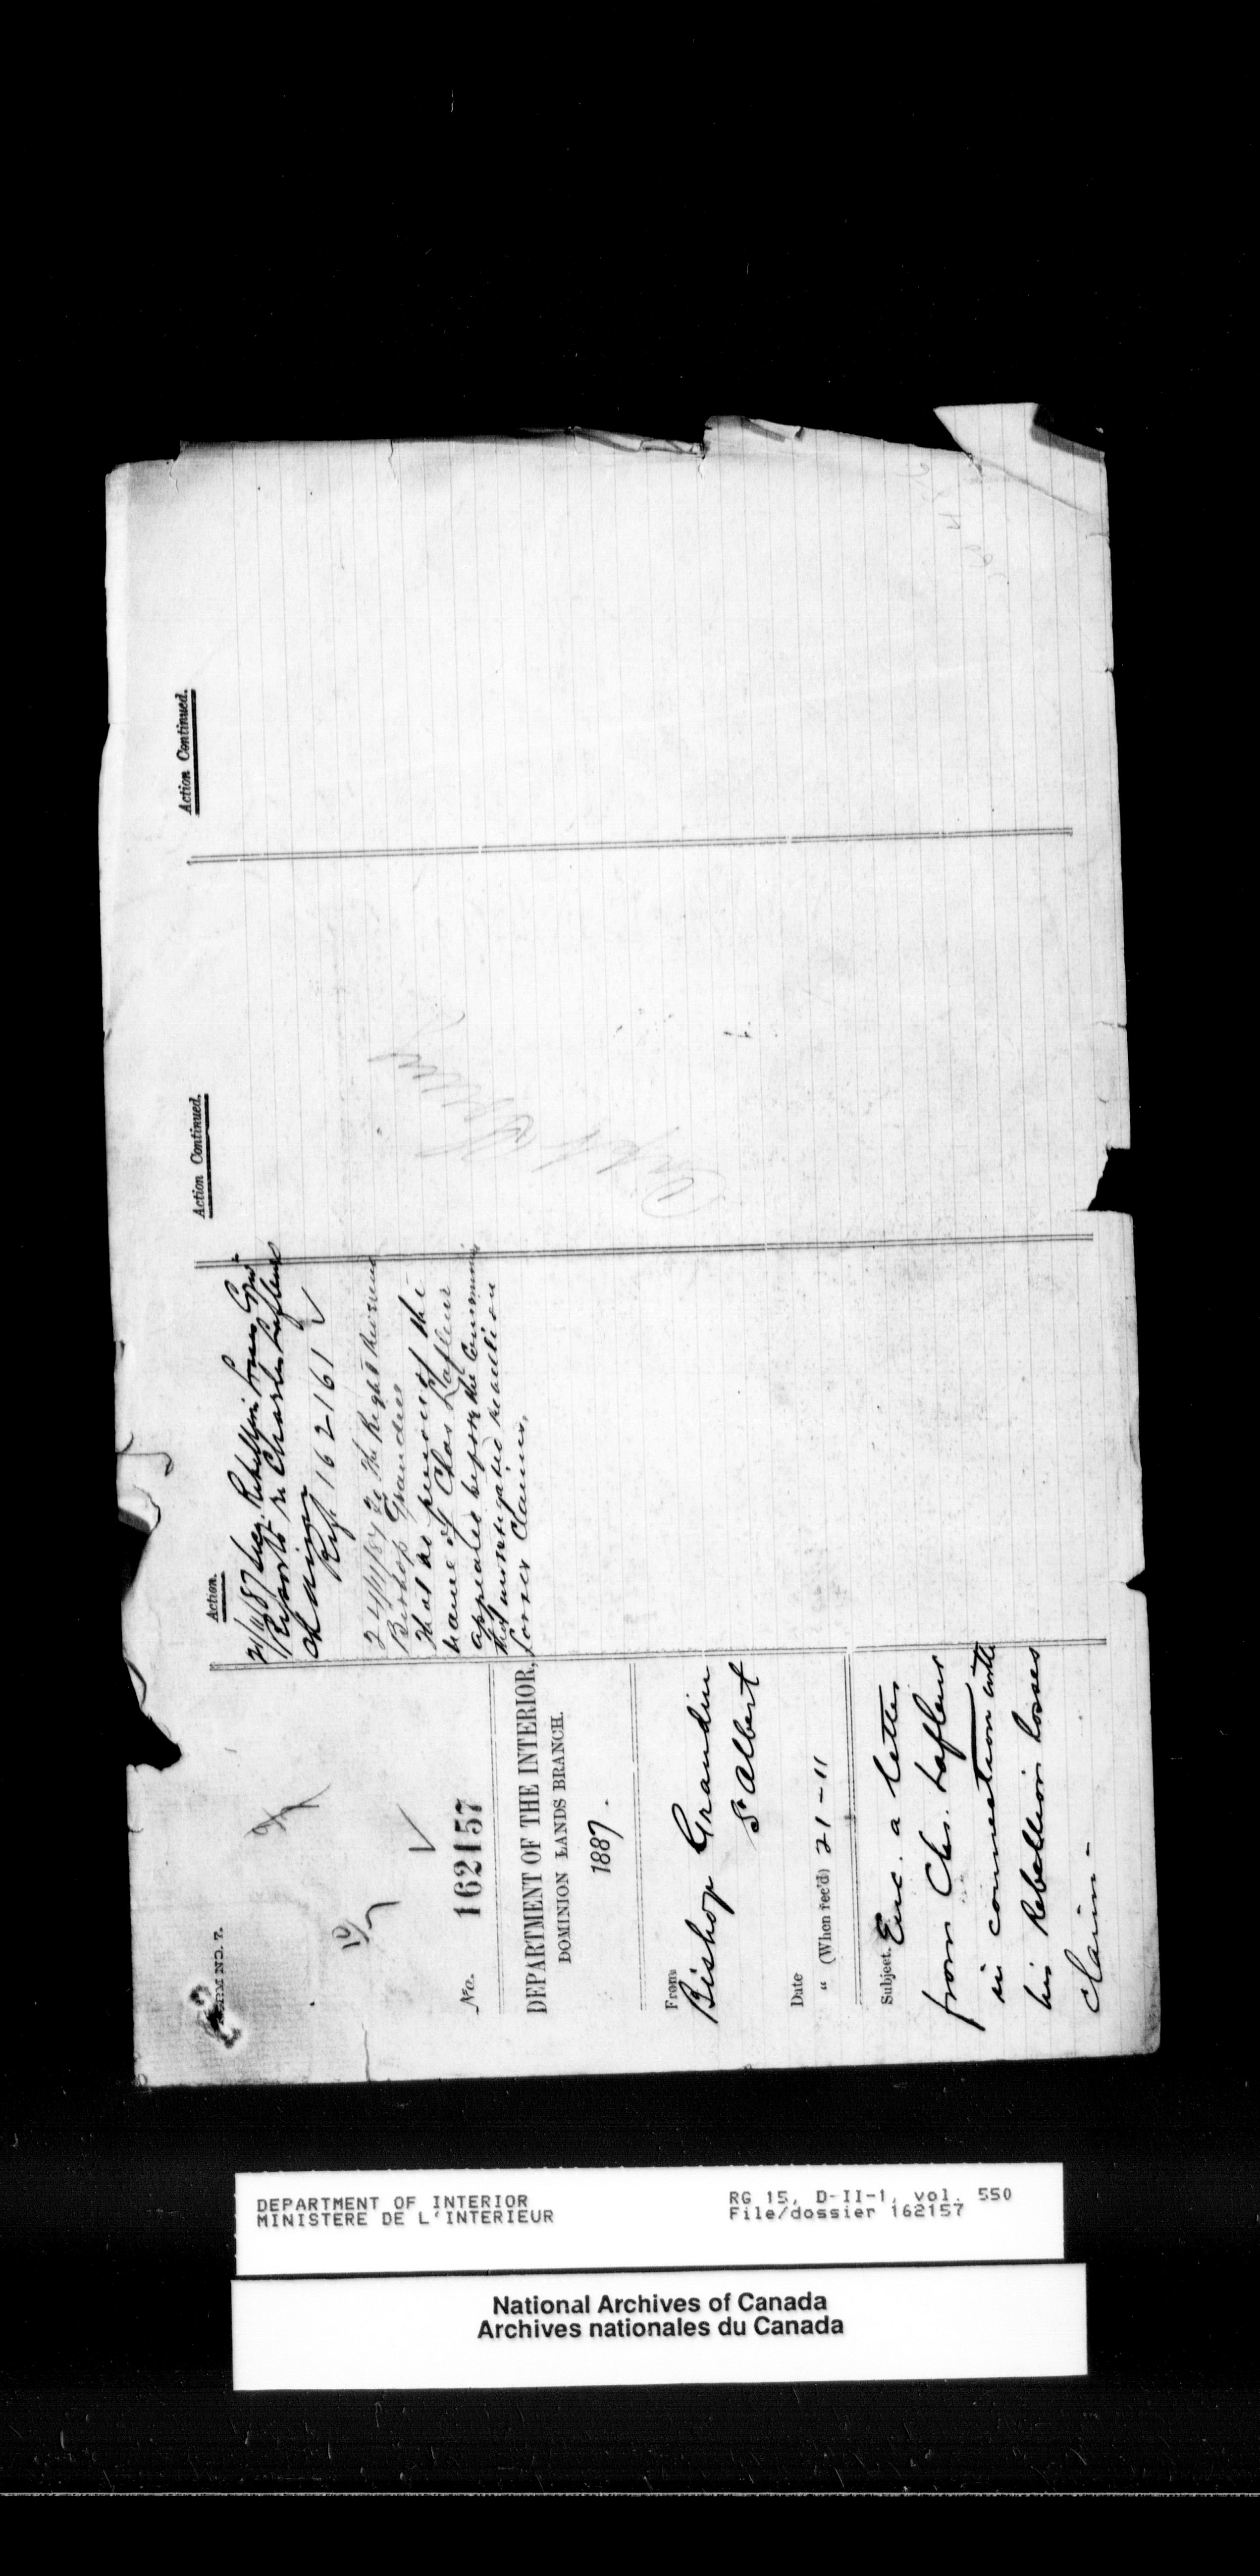 FORM NO. 7.
No. 162157
DEPARTMENT OF THE INTERIOR,
DOMINION LANDS BRANCH.
1887.
From
Bishop Grandin
St Albert
Date
" (When rec'd) 21-11
Subject. Enc. a letter
from Chs. Lafleur
in connection with
his Rebellion Losses
Claim-
Action.
21/11/87 Rebellion Losses
Reports re Charles Lafleur
claim
Ref 162161
24/11/87 To The Right Reverend
Bishop Grandin
That no person of the
name of Chas Lafleur
appeared before the
that investigated Rebellion
Losses Claims,
Action Continued.
Action Continued.
DEPARTMENT OF INTERIOR
MINISTERE DE L'INTERIEUR
RG 15, D-II-1, vol. 550
File/dossier 162157
National Archives of Canada
Archives nationales du Canada